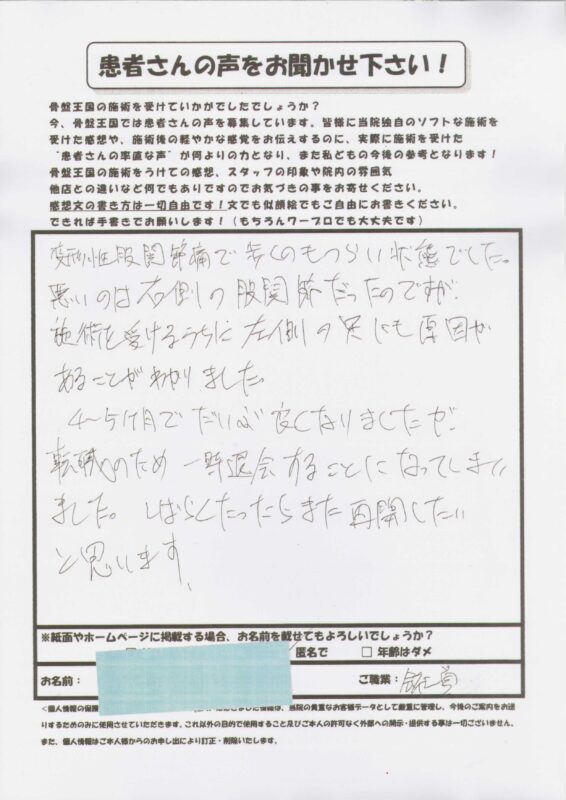 患者さんの声をお聞かせ下さい！
骨盤王国の施術を受けていかがでしたでしょうか？
今、骨盤王国では患者さんの声を募集しています。皆様に当院独自のソフトな施術を
受けた感想や、施術後の軽やかな感覚をお伝えするのに、実際に施術を受けた
"患者さんの率直な声"が何よりの力となり、また私どもの今後の参考となります！
骨盤王国の施術をうけての感想、スタッフの印象や院内の雰囲気
他店との違いなど何でもありですのでお気づきの事をお寄せください。
感想文の書き方は一切自由です！文でも似顔絵でもご自由にお書きください。
できれば手書きでお願いします！（もちろんワープロでも大丈夫です）
変形性股関節痛で歩くのもつらい状態でした。
悪いのは右側の股関節だったのですが、
施術を受けるうちに左側の足にも原因が
あることがわかりました。
4〜5ヶ月でだいぶ良くなりましたが、
転職のため一時退会することになってしまい
ました。しばらくたったらまた再開したい
と思います、
※紙面やホームページに掲載する場合、お名前を載せてもよろしいでしょうか？
匿名で □ 年齢はダメ
お名前： ご職業：会社員
＜個人情報の保護
は、当院の貴重なお客様データとして厳重に管理し、今後のご案内をお送
りするためのみに使用させていただきます。これ以外の目的で使用すること及びご本人の許可なく外部への開示・提供する事は一切ございません。
また、個人情報はご本人様からのお申し出により訂正・削除いたします。